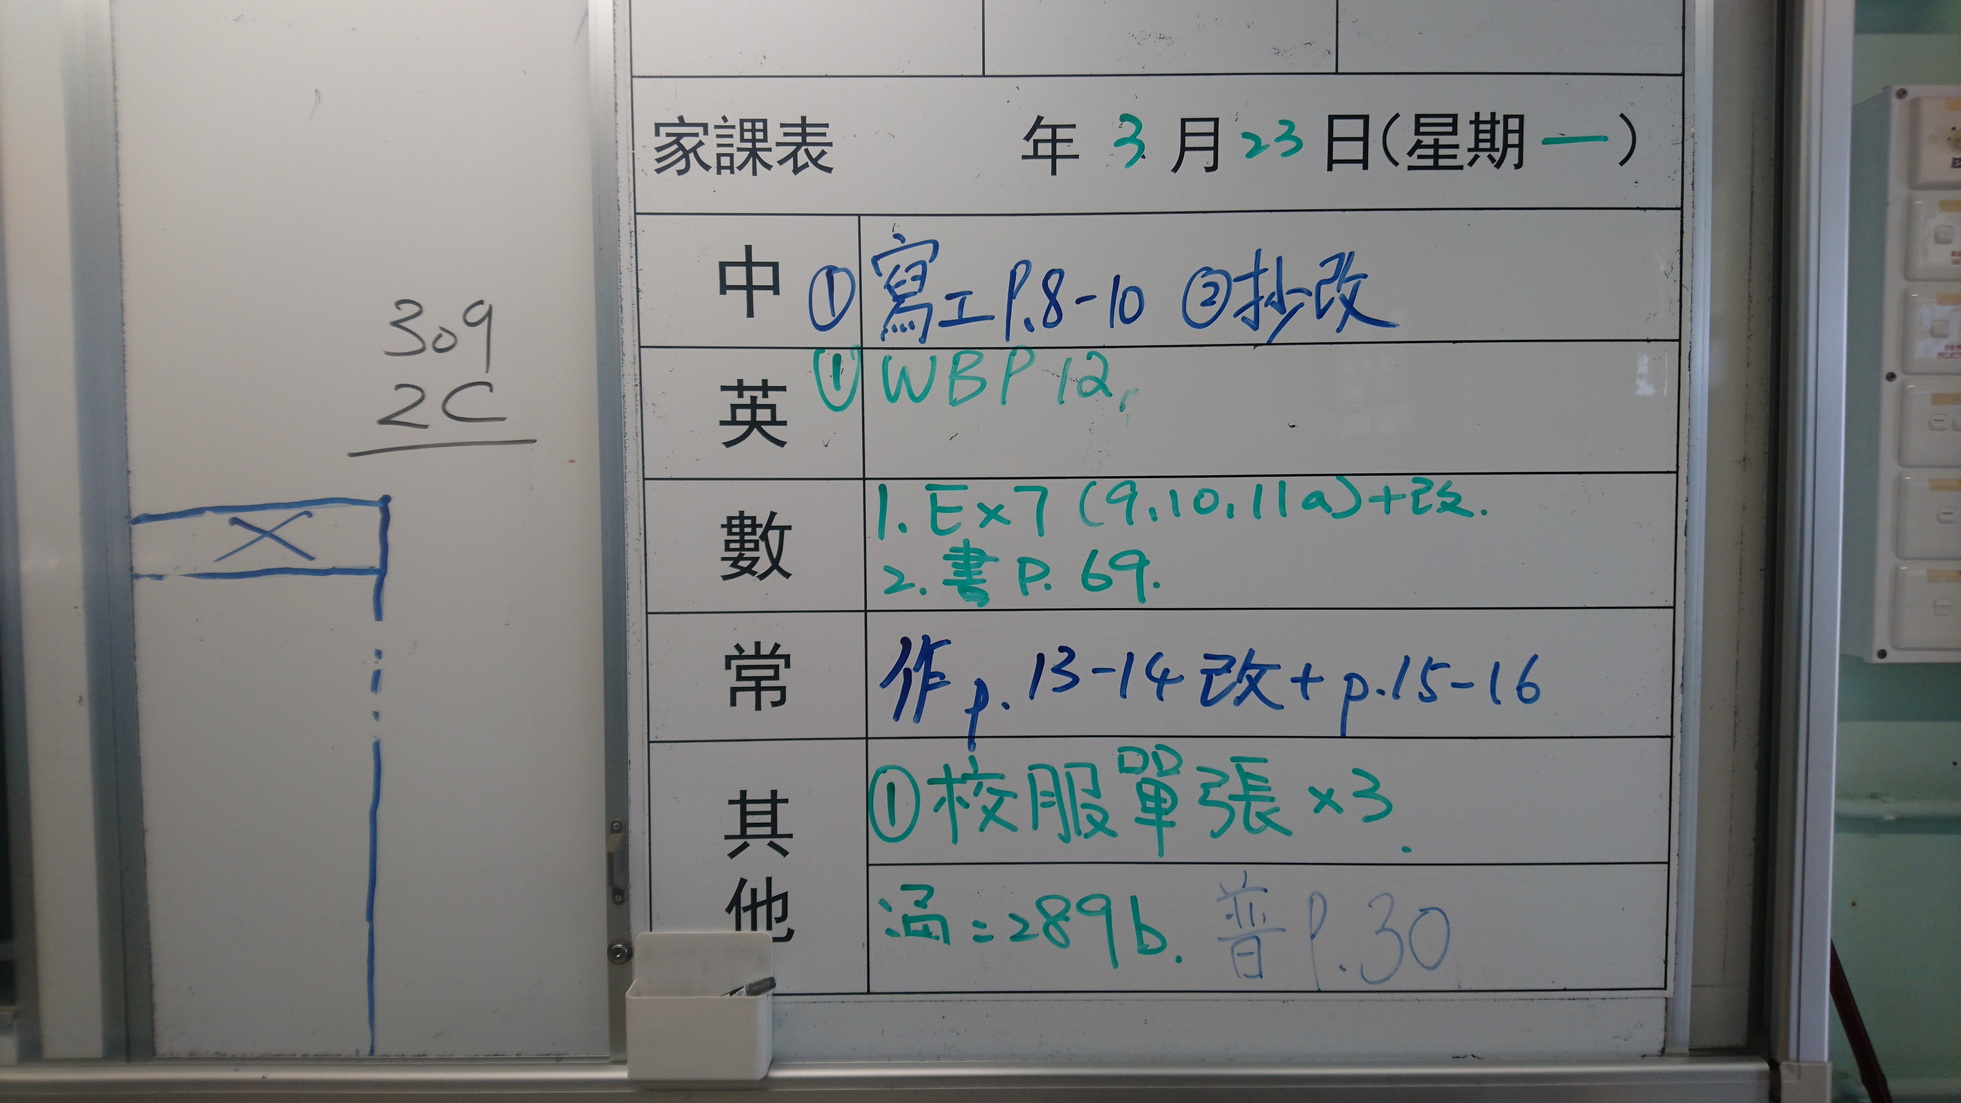 309
2C
家課表 年 3 月 23 日(星期一)
中 ① 寫工 P.8-10 ②抄改
英 ① WB P 12,
數 1. Ex7 (9,10,11a)+改.
2. 書 P. 69.
常 作 p. 13-14 改 + p.15-16
其他 ①校服單張 ×3.
函=289b. 普 P.30